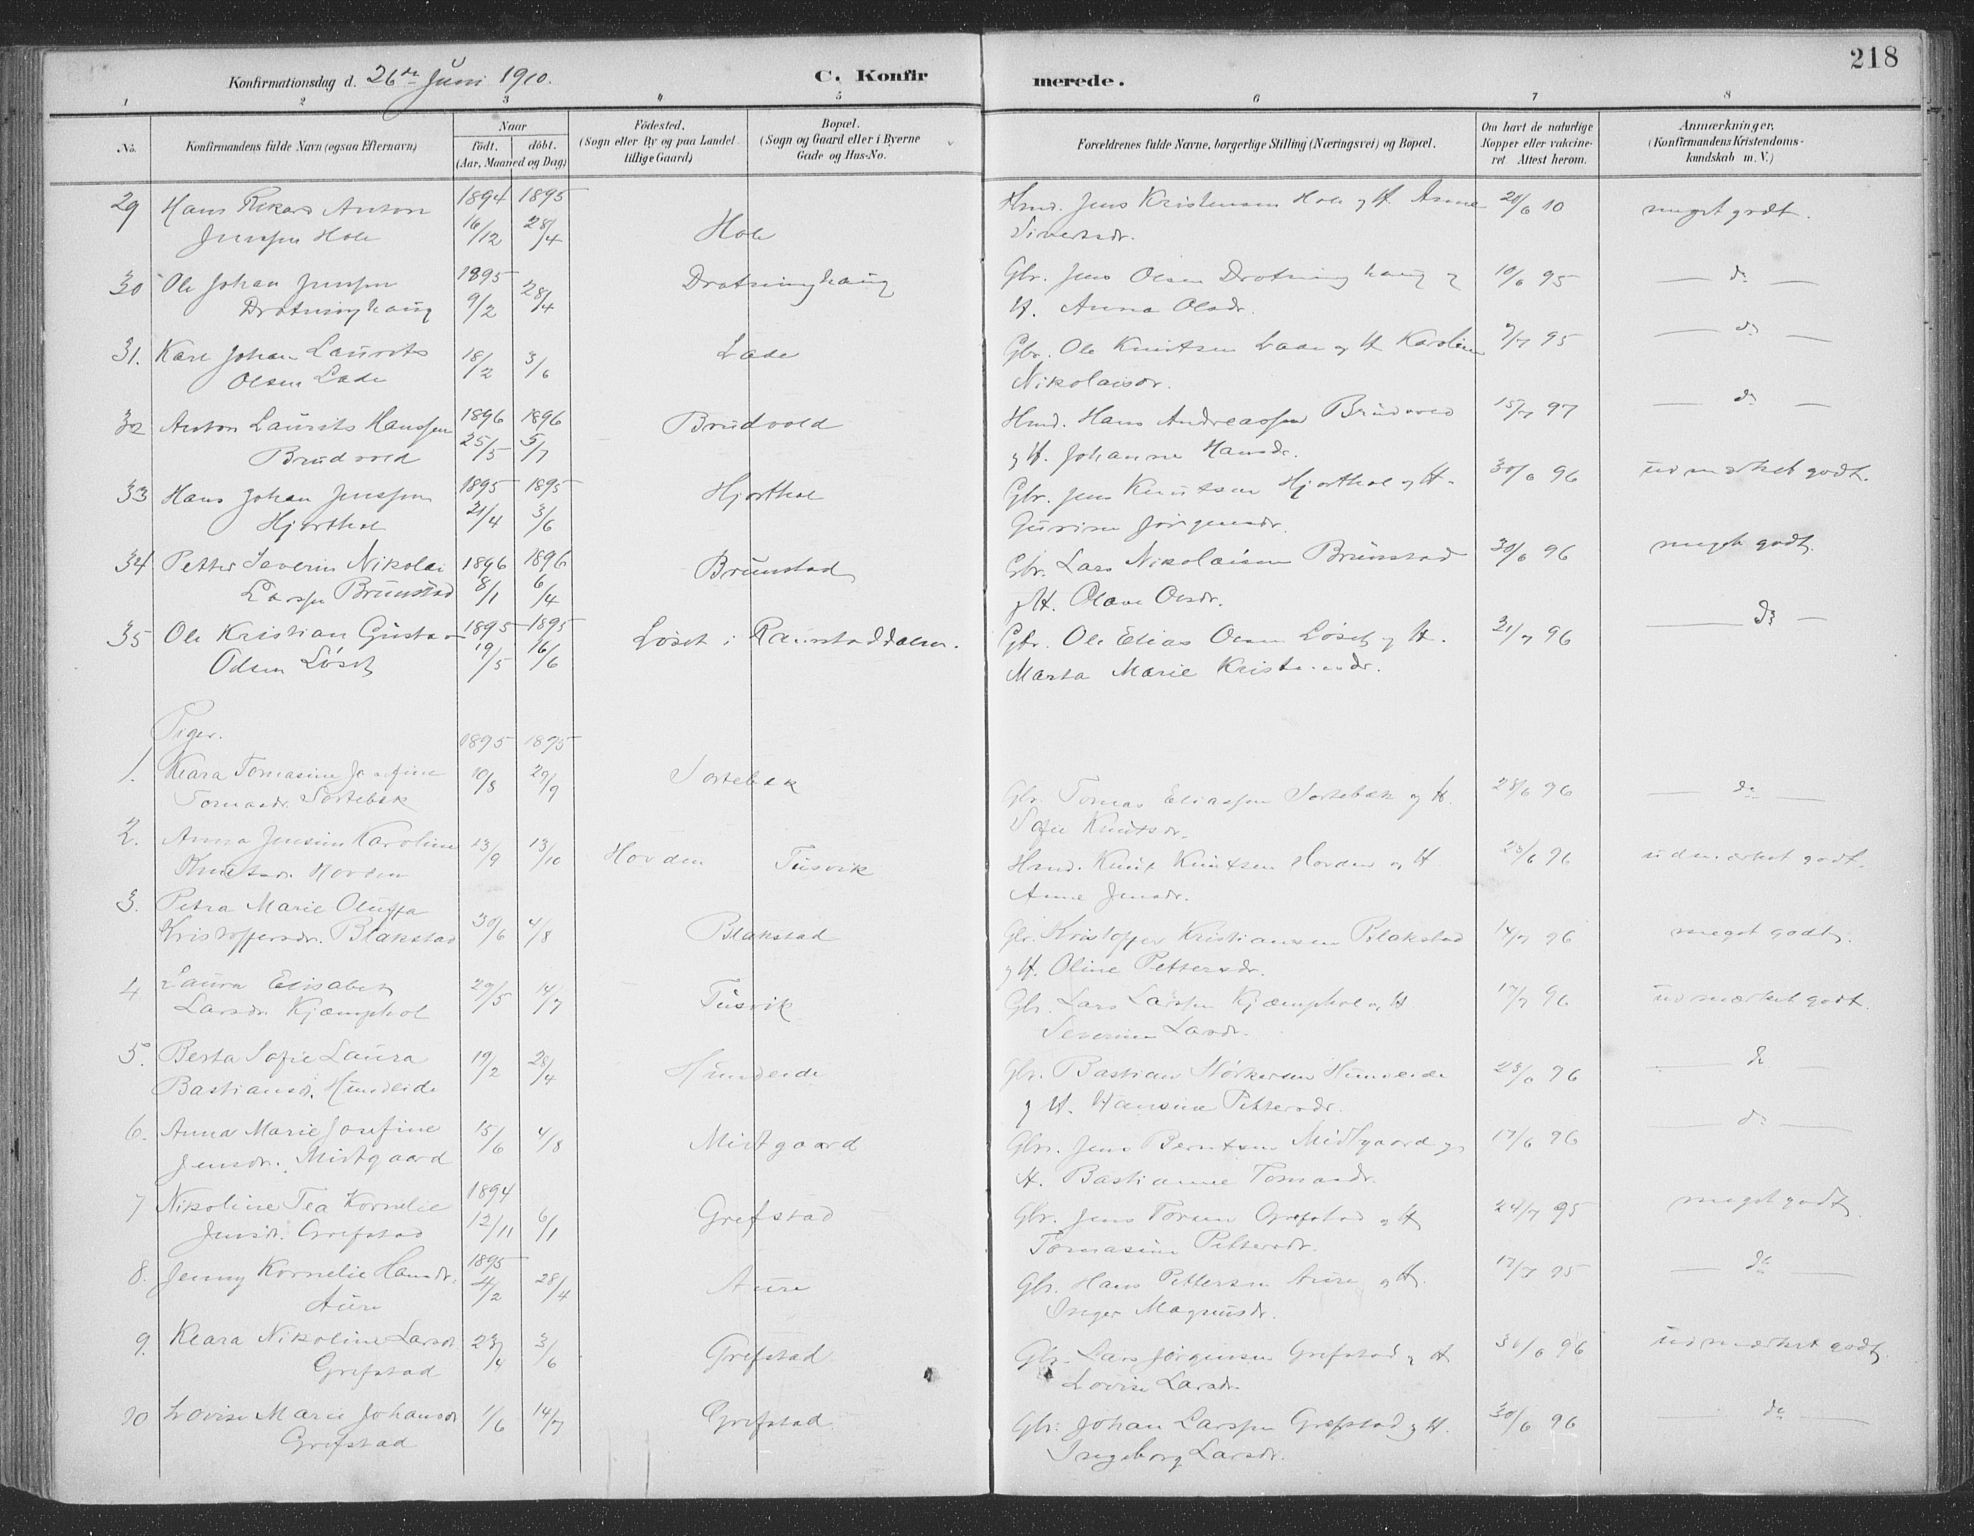 218
Konfirmationsdag d. 26de Juni 1910.
C. Konfirmerede.
1 2 3 4 5 6 7 8
No.
Konfirmandens fulde Navn (ogsaa Efternavn)
Naar
født. døbt.
(Aar, Maaned og Dag)
Fødested.
(Sogn eller By og paa Landet tillige Gaard)
Bopæl.
(Sogn og Gaard eller i Byerne Gade og Hus-No.
Forældrenes fulde Navne, borgerlige Stilling (Næringsvei) og Bopæl.
Om havt de naturlige Kopper eller vakcineret. Attest herom.
Anmærkninger.
(Konfirmandens Kristendomskundskab m. V.)
29 Hans Rikard Anton 1894 1895 Hmd. Jens Kristensen Hole og H. Anne
Jenssen Hole 16/12 28/4 Hole Sivertsdr. meget godt.
30 Ole Johan Jenssen 1895 Drotninghaug Gbr. Jens Olsen Drotninghaug og 10/6 95 do
Drotninghaug 9/2 28/4 H. Anna Olsdr.
31. Karl Johan Laurits 18/2 3/6 Lade Gbr. Ole Knutsen Lade og H. Karoline 9/7 95 do
Olsen Lade Nikolaisdr.
32 Anton Laurits Hanssen 1896 1896 Brudvold Hmd. Hans Andreassen Brudvold 15/7 97 do
Brudvold 25/5 5/7 og H. Johanne Hansdr.
33 Hans Johan Jenssen 1895 1895 Hjorthol Gbr. Jens Knutsen Hjorthol og H. 30/6 96 udmærket godt.
Hjorthol 21/4 3/6 Gurine Jørgensdr.
34 Petter Severin Nikolai 1896 1896 Brunstad Gbr. Lars Nikolaisen Brunstad 30/6 96 meget godt.
Larssen Brunstad 8/1 6/4 og H. Olave Olsdr.
35 Ole Kristian Gustav 1895 1895 Løset i Ramstaddalen. Gbr. Ole Elias Olsen Løset og H. 21/7 96 do
Olsen Løset 19/5 16/6 Marta Marie Kristensdr.
Piger.
1895 1895
1. Klara Tomasine Josefine 10/8 29/9 Sortebæk Gbr. Tomas Eliassen Sortebæk og H. 28/6 96 do
Tomasdr. Sortebæk Sofie Knutsdr.
2. Anna Jensine Karoline 13/9 13/10 Hovden Tusvik Hmd. Knut Knutsen Hovden og H. 23/6 96 udmærket godt.
Knutsdr. Hovden Anne Jensdr.
3. Petra Marie Oluffa
Kristoffersdr. Blakstad 30/6 4/8 Blakstad Gbr. Kristoffer Kristiansen Blakstad 14/7 96 meget godt.
og H. Oline Pettersdr.
4 Laura Elisabet 29/5 14/7 Tusvik Gbr. Lars Larssen Kjæmphol og H. 17/7 96 udmærket godt.
Larsdr. Kjæmphol Severine Larsdr.
5. Berta Sofie Laura 19/2 28/4 Hundeide Gbr. Bastian Størkersen Hundeide 23/6 96 do
Bastiansdr. Hundeide og H. Hansine Pettersdr.
6. Anna Marie Josefine 15/6 4/8 Midtgaard Gbr. Jens Berntsen Midtgaard og 17/6 96 do
Jensdr. Midtgaard H. Bastianne Tomasdr.
7 Nikoline Tea Kornelie 1894 Grefstad Gbr. Jens Torsen Grefstad og H 24/7 95 meget godt.
Jensdr. Grefstad 12/11 6/1 Tomasine Pettersdr.
8. Jenny Kornelie Hansdr. 1895 Aure Gbr. Hans Pettersen Aure og H. 17/7 95 do
Aure 4/2 28/4 Inger Magnusdr.
9. Klara Nikoline Larsdr 23/4 3/6 Grefstad Gbr. Lars Jørgensen Grefstad og H 30/6 96 udmærket godt.
Grefstad Lovise Larsdr.
10 Lovise Marie Johansdr 1/6 14/7 Grefstad. Gbr. Johan Larssen Grefstad og H. 30/6 96 do
Grefstad Ingeborg Larsdr.